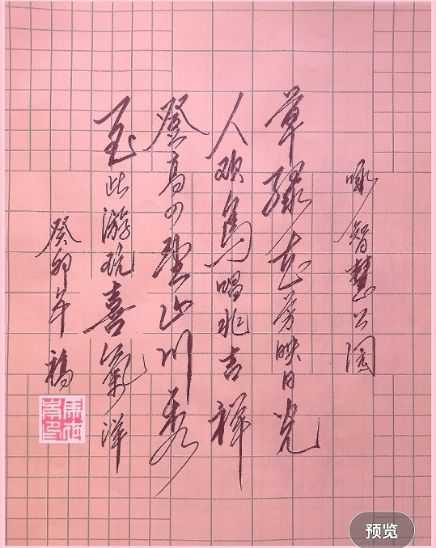 咏智慧公园
草绿花芳映日光
人欢鸟唱兆吉祥
登高可望山川秀
至此游玩喜气洋
癸卯年
预览